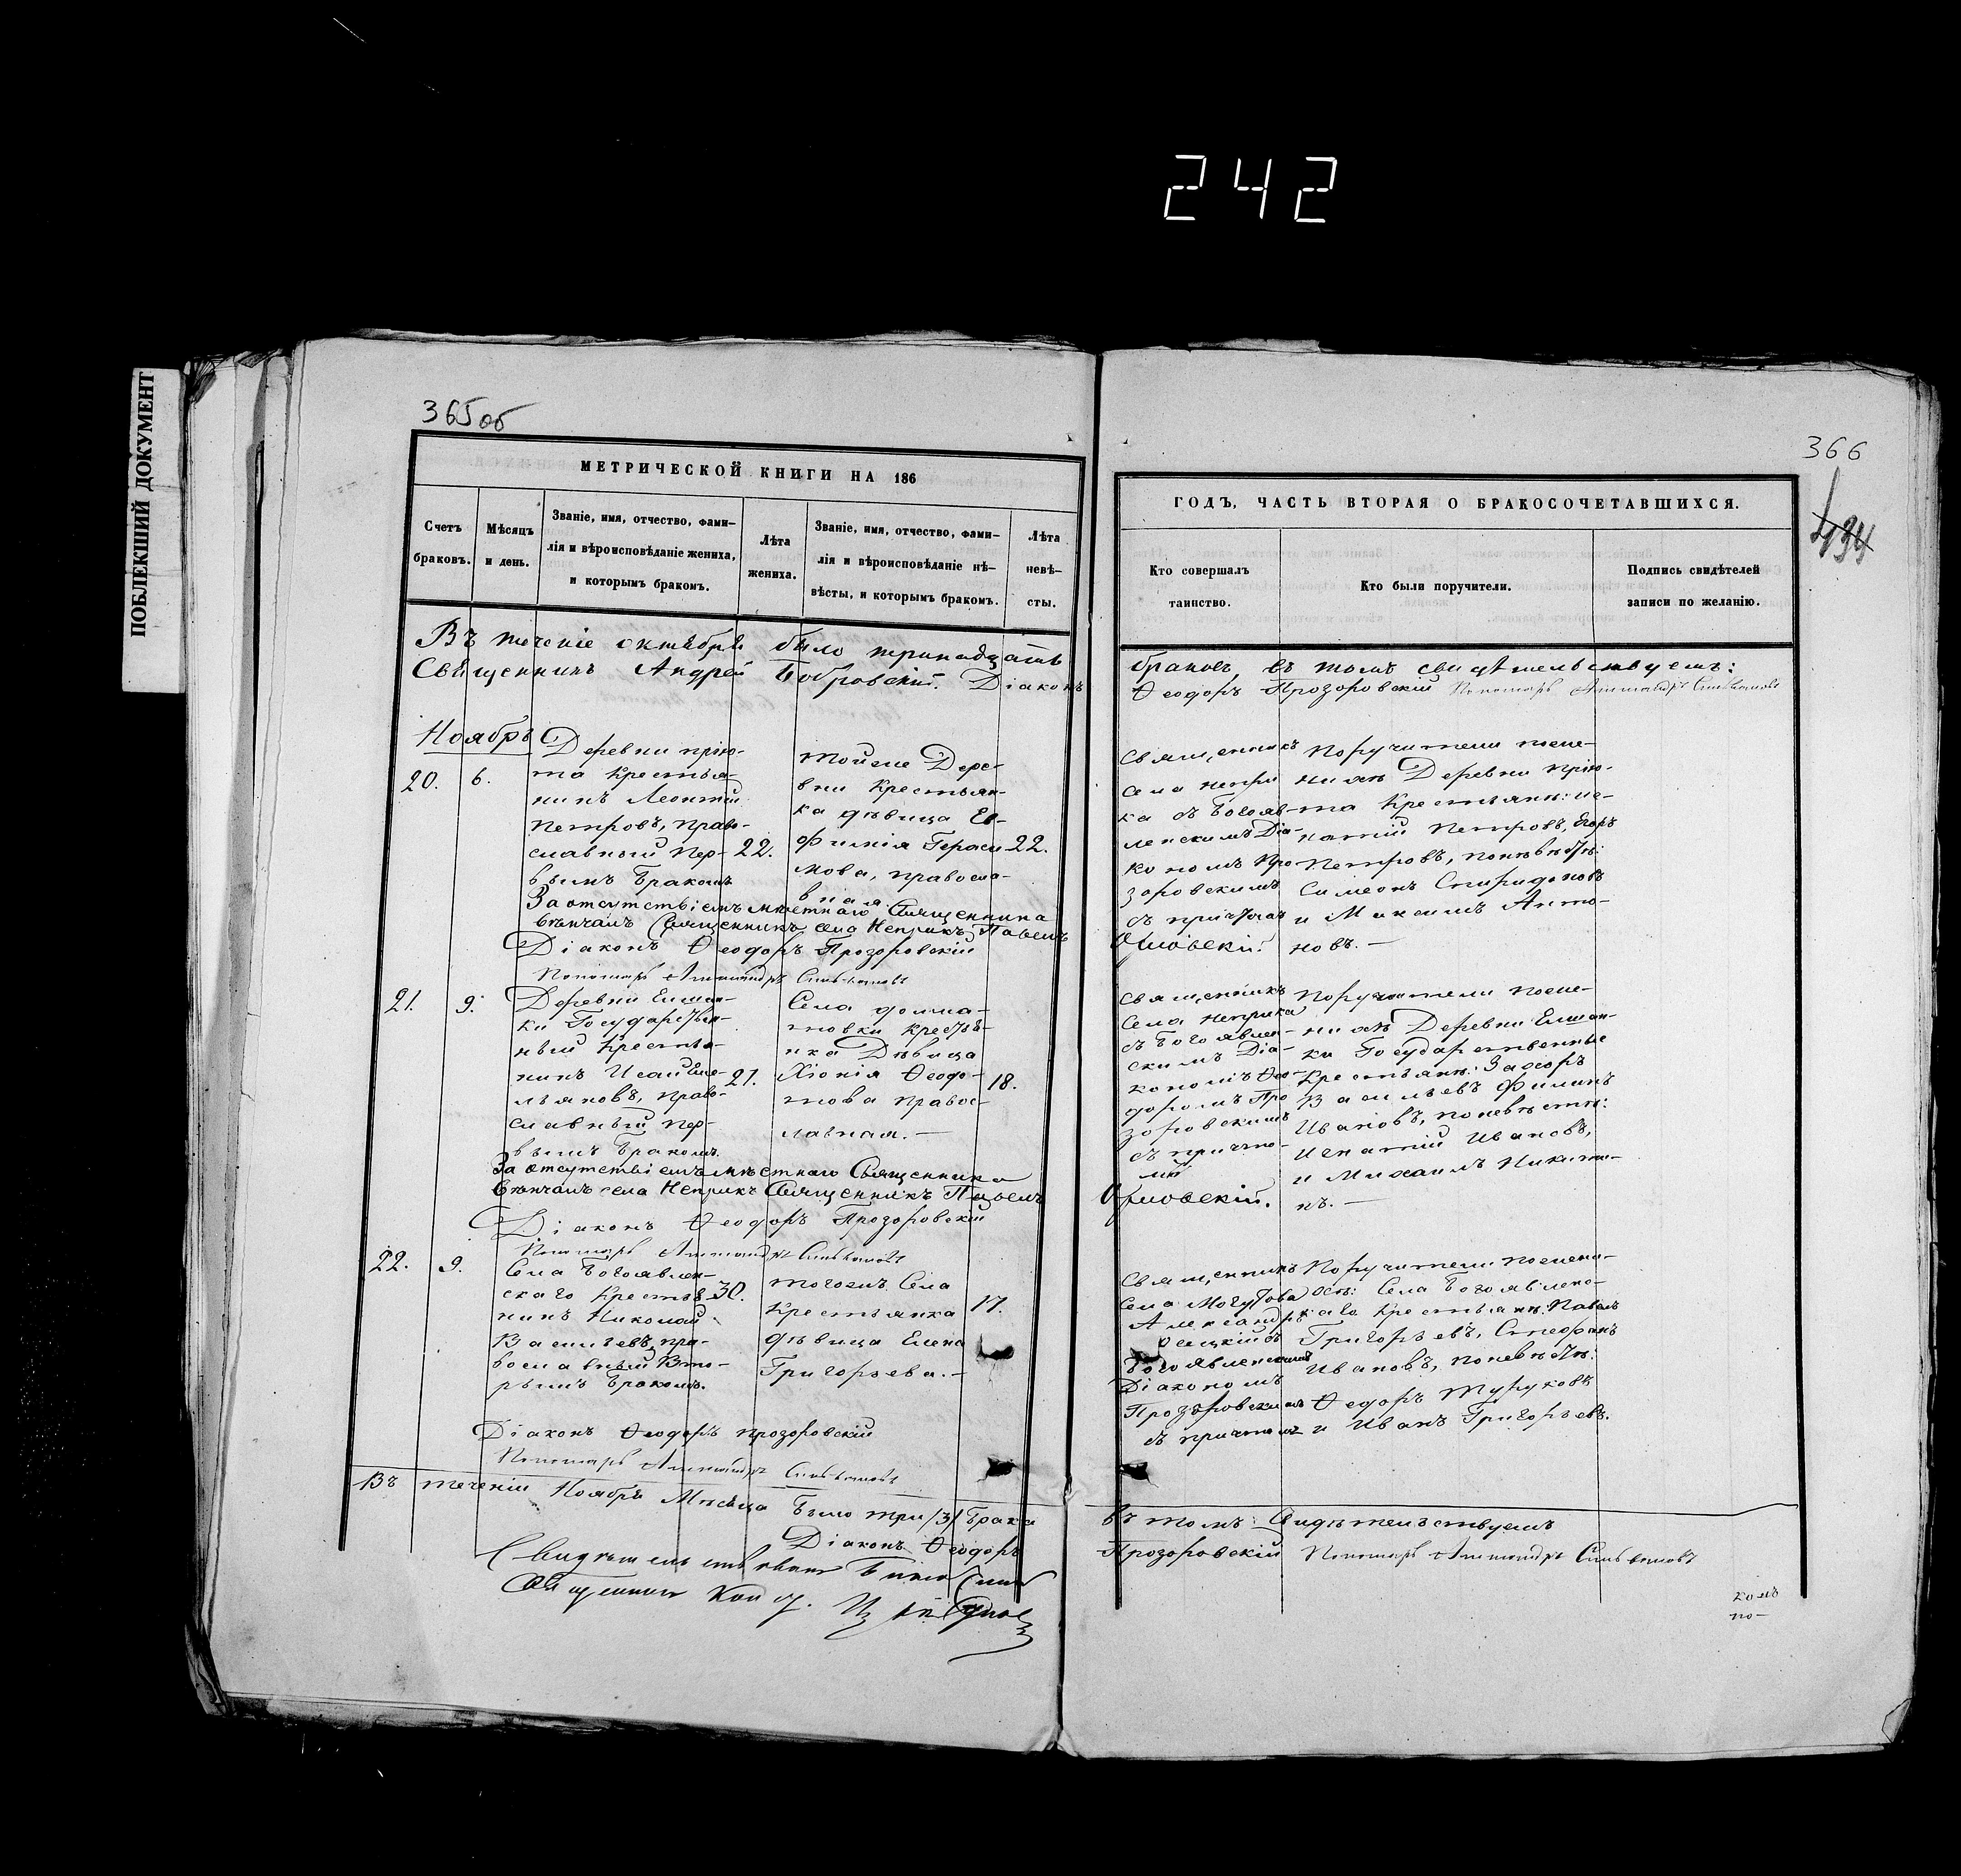 242
ПОБЛЕКШИЙ ДОКУМЕНТ
365об
МЕТРИЧЕСКОЙ КНИГИ НА 186
Счетъ браковъ.
Мѣсяцъ и день.
Званіе, имя, отчество, фами-
лія и вѣроисповѣданіе жениха,
и которымъ бракомъ.
Лѣта жениха.
Званіе, имя, отчество, фами-
лія и вѣроисповѣданіе нѣ-
вѣсты, и которымъ бракомъ.
Лѣта невѣ-
сты.
Въ теченіе октября было тринадцать
Священникъ Андрей Бобровскій. Діаконъ
Ноябрь
20. 6.
Деревни Прію-
та Крестья-
нинъ Леонтій
Петровъ, право-
славный пер-
вымъ бракомъ
22.
тойже Дере-
вни Крестьян-
ка дѣвица Ев-
фимія Гераси
мова, правосла-
вная
22.
За отсутствіемъ мѣстнаго Священника
вѣнчалъ Священникъ села Неприкъ Павелъ
Діаконъ Ѳеодоръ Прозоровскій
Пономарь
21. 9.
Деревни Елшан-
ки Государствен-
ный Крестья-
нинъ Исай Еме-
льяновъ, право-
славный пер-
вымъ бракомъ.
21.
Села
товки Крестья-
нка Дѣвица
Хіонія Ѳеодо-
това правос-
лавная.—
18.
За отсутствіемъ мѣстнаго Священника
вѣнчалъ села Неприкъ Священникъ Павелъ
Діаконъ Ѳеодоръ Прозоровскій
Пономарь
22. 9.
Села Богоявлен-
скаго Крестья-
нинъ Николай
Васильевъ, пра-
вославный Вто-
рымъ бракомъ.
30.
тогожъ Села
Крестьянка
дѣвица Елена
Григорьева.—
17.
Діаконъ Ѳеодоръ Прозоровскій
Пономарь
Въ теченіи Ноября Мѣсяца было три /3/ брака
Діаконъ Ѳеодоръ
366
434
ГОДЪ, ЧАСТЬ ВТОРАЯ О БРАКОСОЧЕТАВШИХСЯ.
Кто совершалъ таинство.
Кто были поручители.
Подпись свидѣтелей
записи по желанію.
браковъ въ томъ свидѣтельствуемъ:
Ѳеодоръ Прозоровскій Пономарь
Священникъ
Села Непри
ка съ Богояв-
ленскимъ Діа-
кономъ Про
зоровскимъ
съ причтом
Орловскій.
Поручители по же-
нихѣ Деревни Прію-
та Крестьяне: Иг-
натій Петровъ, Егоръ
Петровъ, по невѣстѣ:
Симеонъ Спиридоновъ
и Максимъ Анто-
новъ.—
Священникъ
Села Неприка
съ Богоявлен-
скимъ Діа-
кономъ Ѳео-
доромъ Про
зоровскимъ
съ причто-
мъ
Орловскій.
Поручители по же-
нихѣ Деревни Елшан-
ки Государственные
Крестьяне: Захаръ
Васильевъ Филипъ
Ивановъ, по невѣстѣ:
Игнатій Ивановъ,
и Михаилъ Никити-
нъ.—
Священникъ
Села Могутова
Александръ
Богоявленскимъ
Діакономъ
Прозоровскимъ
съ причтомъ
Поручители по жени-
хѣ: Села Богоявленс-
каго Крестьяне: Павелъ
Григорьевъ, Стефанъ
Ивановъ, по невѣстѣ:
Ѳедоръ Туруковъ
и Иванъ Григорьевъ.
въ томъ: Свидѣтельствуемъ
Прозоровскій Пономарь